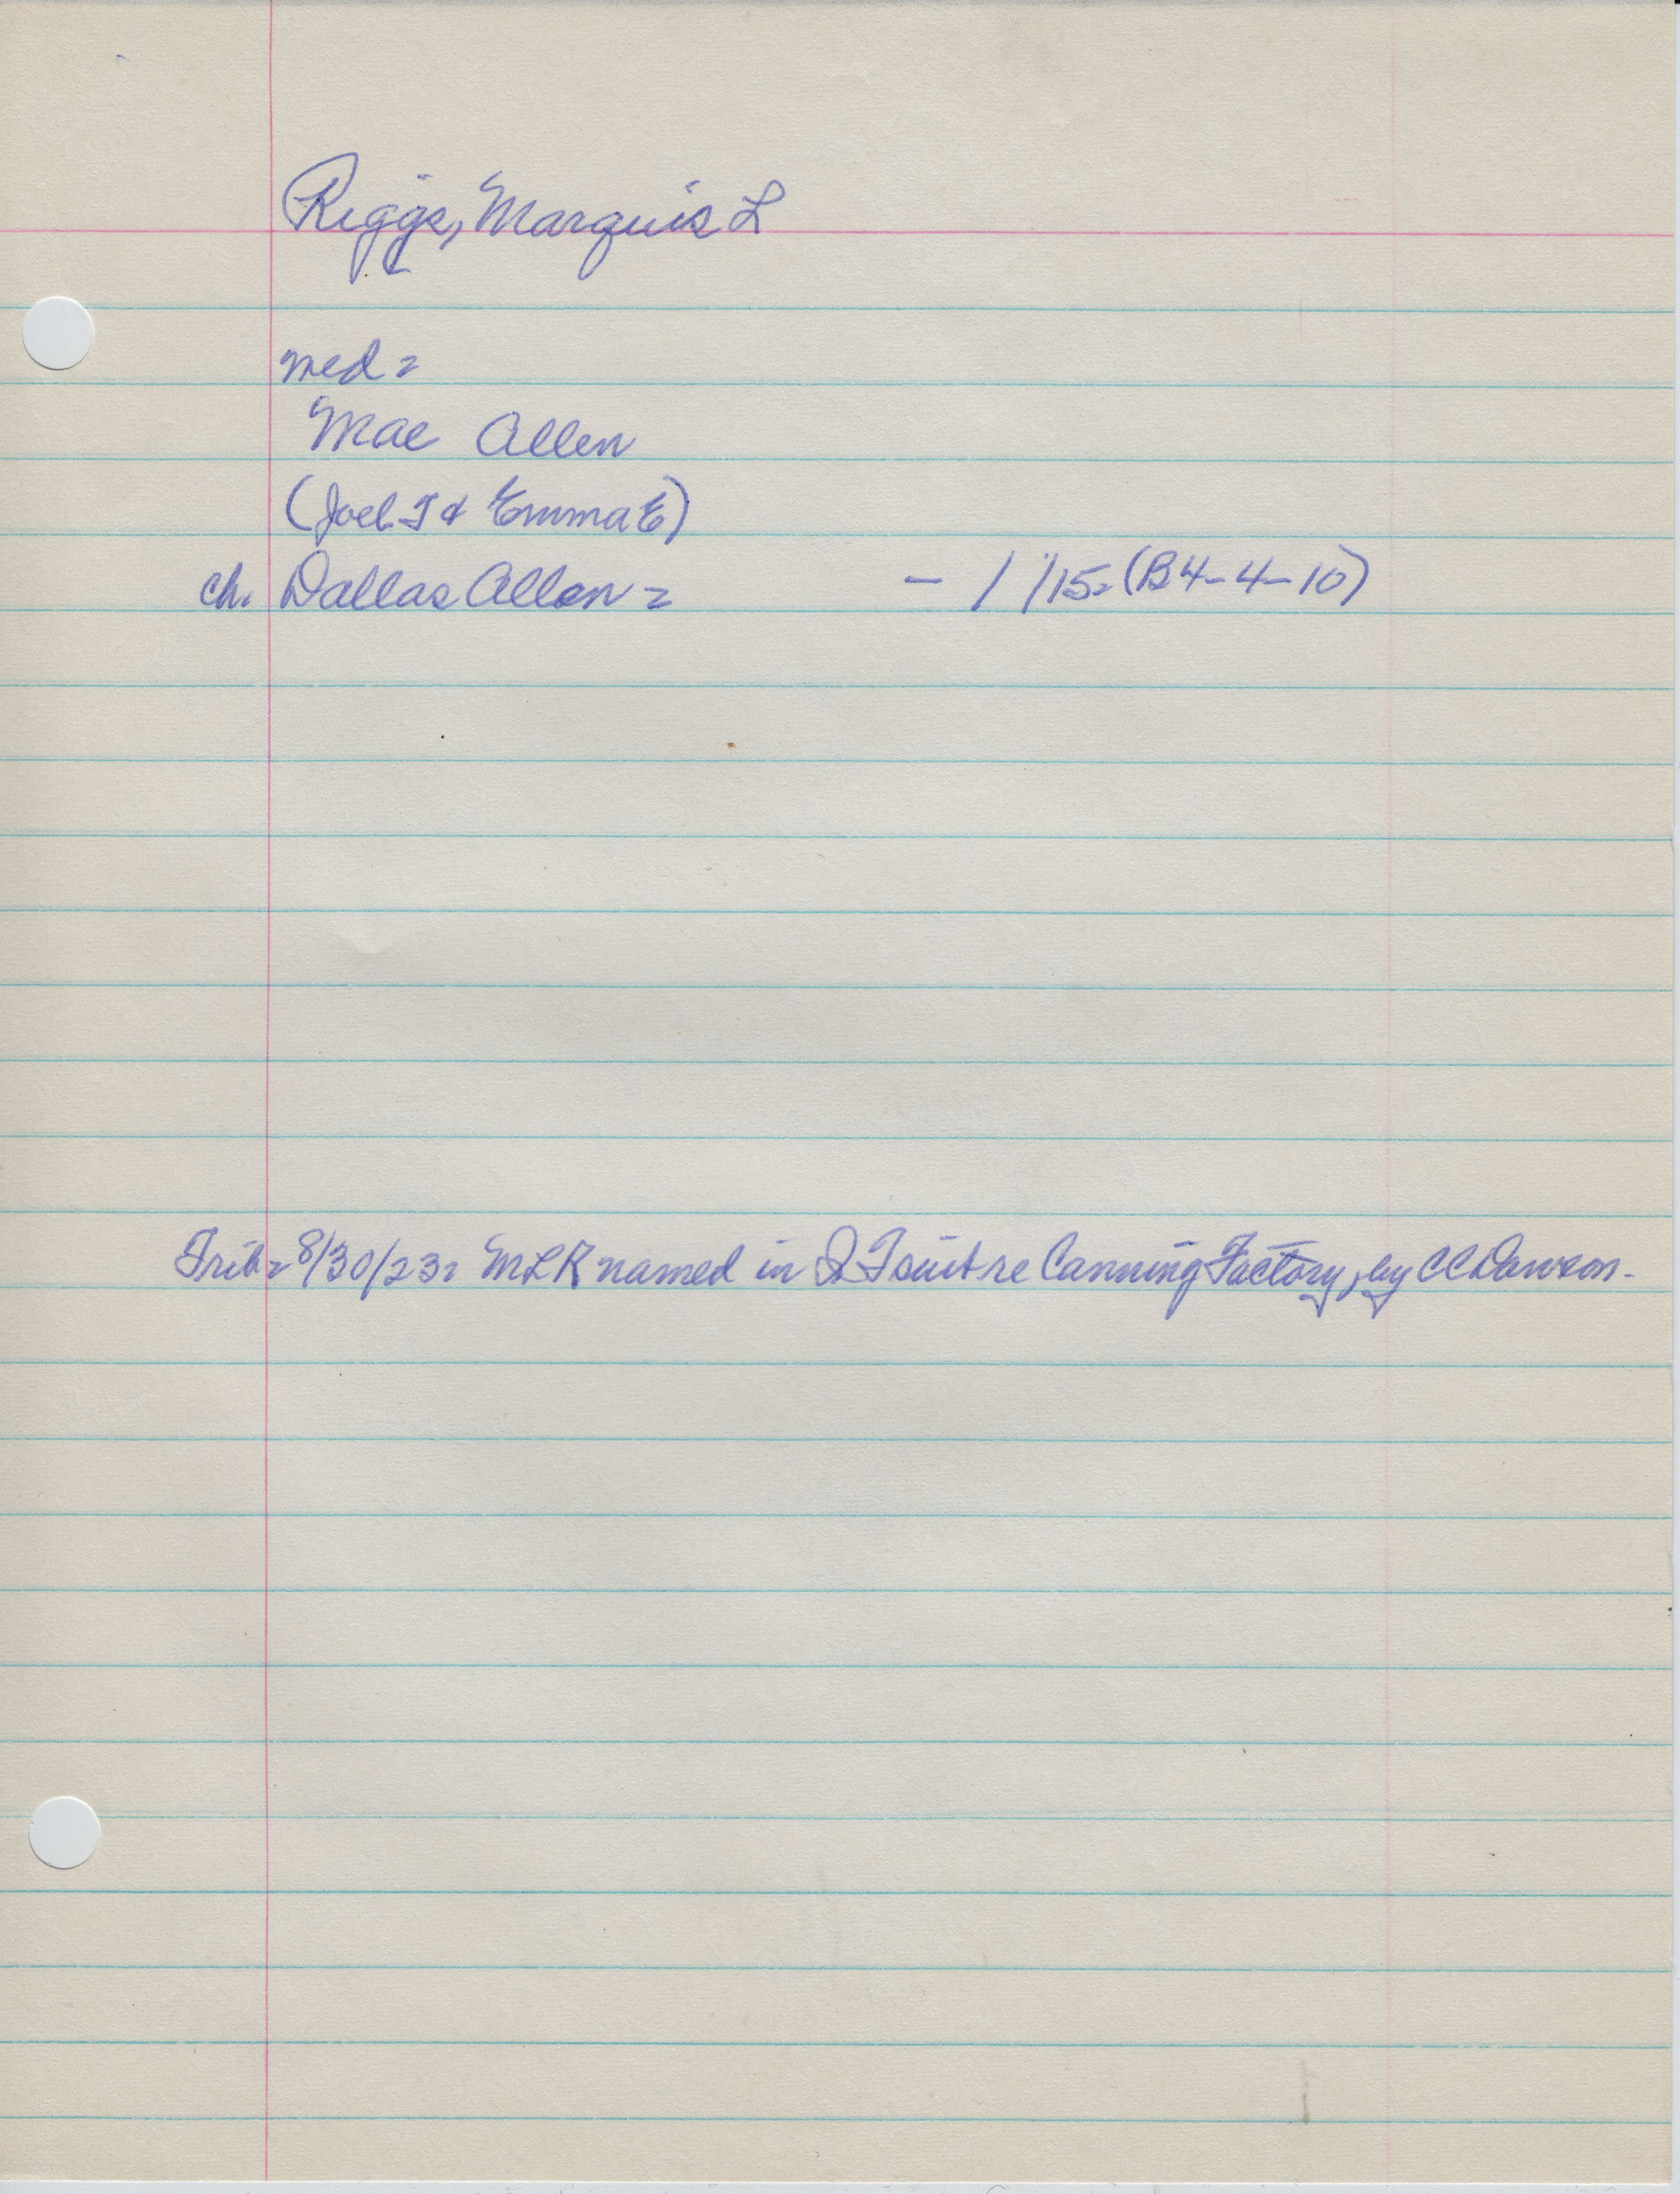 Riggs, Marquis L
med =
Mae Allen
(Joel T & Emma E)
ch. Dallas Allen = - / /15 = (B4-4-10)
Trib = 8/30/23 = MLR named in suit re Canning Factory, by CC Dawson.